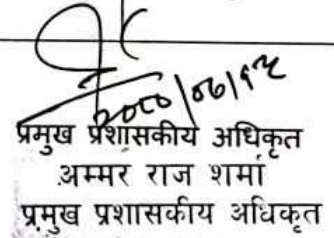 प्रमुख प्रशासकीय अधिकृत
अम्मर राज शर्मा
प्रमुख प्रशासकीय अधिकृत